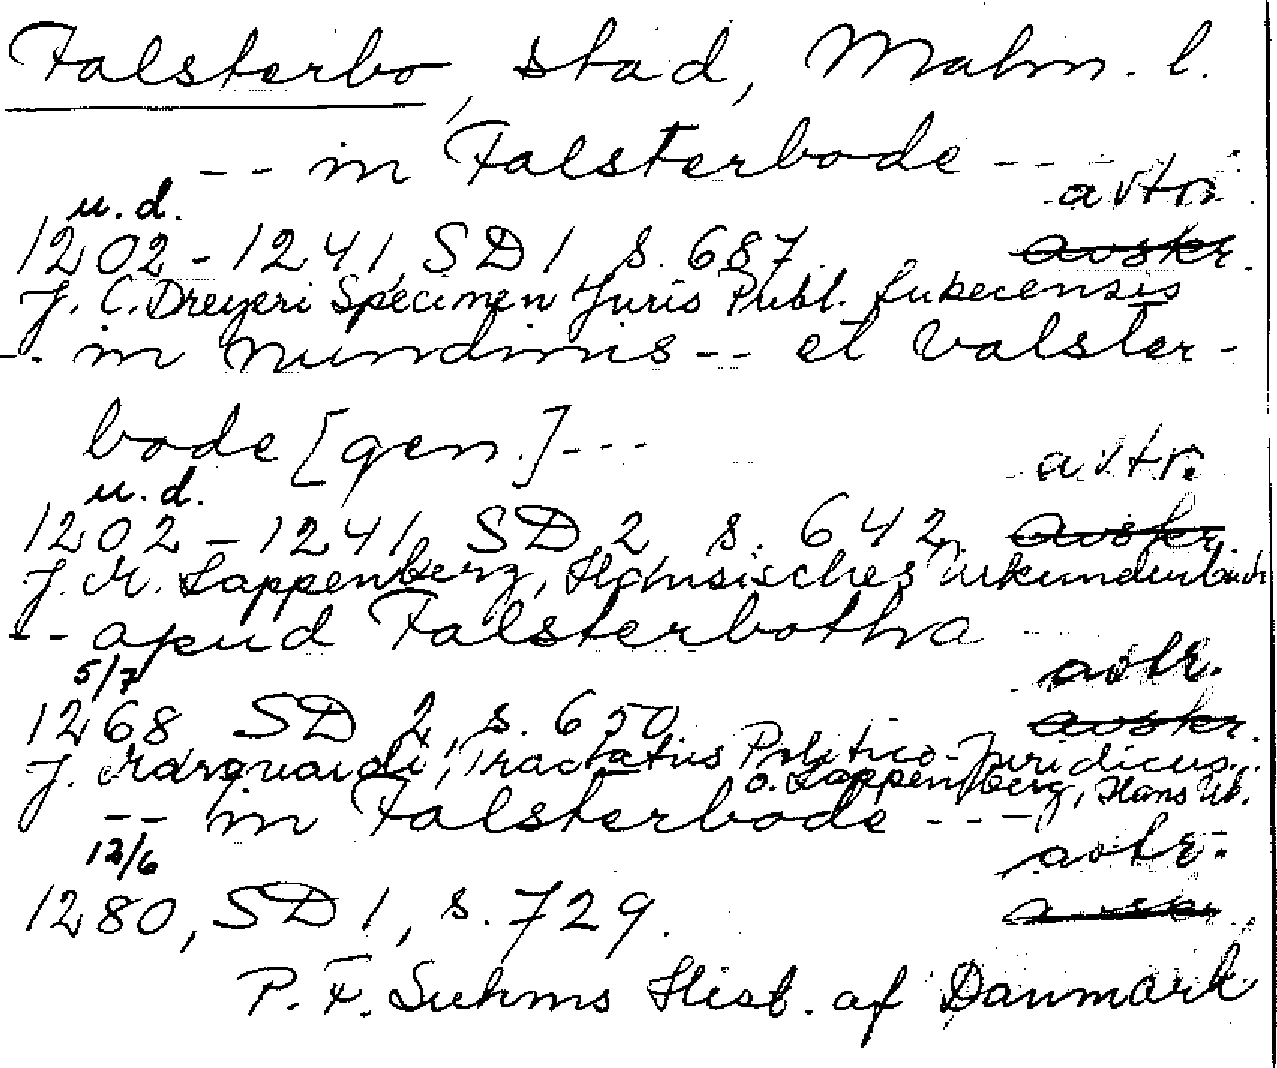 Falsterbo, stad, Malm. l.
-- in Falsterbode ---
u. d. avtr.
1202-1241, SD 1, s. 687. avskr.
J. C. Dreyeri Specimen Juris Publ. Lubecensis
-- in nundinis -- et Valster-
bode [gen.] ---
u. d. avtr.
1202-1241, SD 2 s. 642. avskr.
J. M. Lappenberg, Hansisches Urkundenbuch
-- apud Falsterbotha
5/7 avtr.
1268 SD 2, s. 650 avskr.
J. Marquardi, Tractatus Politico-Juridicus..
o. Lappenberg, Hans Ub.
-- in Falsterbode ---
12/6 avtr.
1280, SD 1, s. 729. avskr.
P. F. Suhms Hist. af Danmark